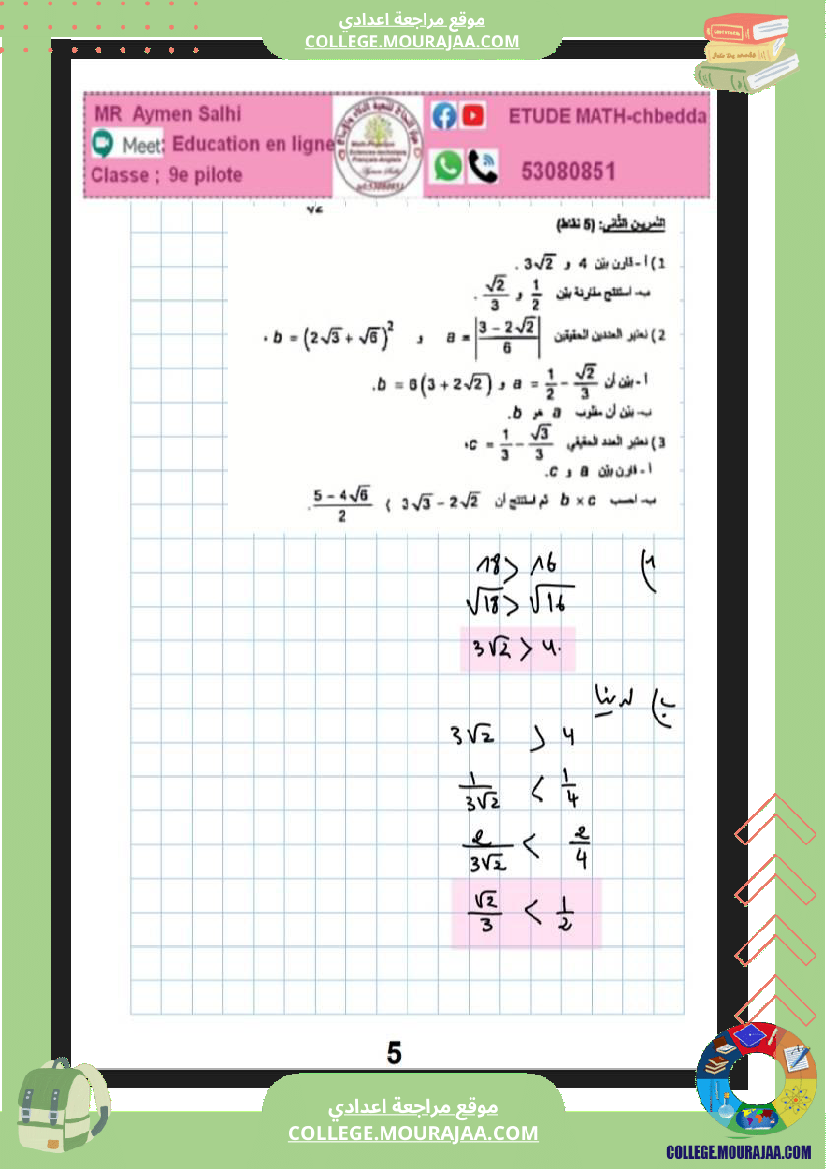 موقع مراجعة اعدادي
COLLEGE.MOURAJAA.COM
MR Aymen Salhi
Meet: Education en ligne
Classe ; 9e pilote
ETUDE MATH-chbedda
53080851
التمرين الثاني: (5 نقاط)
1) أ- قارن بين 4 و 3√2 .
ب- استنتج مقارنة بين 1/2 و √2/3 .
2) نعتبر العددين الحقيقيين a = |(3 − 2√2)/6| و b = (2√3 + √6)²
أ- بين أن a = 1/2 − √2/3 و b = 6(3 + 2√2).
ب- بين أن مقلوب a هو b.
3) نعتبر العدد الحقيقي c = 1/3 − √3/3
أ- قارن بين a و c.
ب- احسب b × c ثم استنتج أن 3√3 − 2√2 ⟨ (5 − 4√6)/2.
1)
18 > 16
√18 > √16
3√2 > 4.
ب) لدينا
3√2 > 4
1/3√2 < 1/4
2/3√2 < 2/4
√2/3 < 1/2
5
موقع مراجعة اعدادي
COLLEGE.MOURAJAA.COM
COLLEGE.MOURAJAA.COM